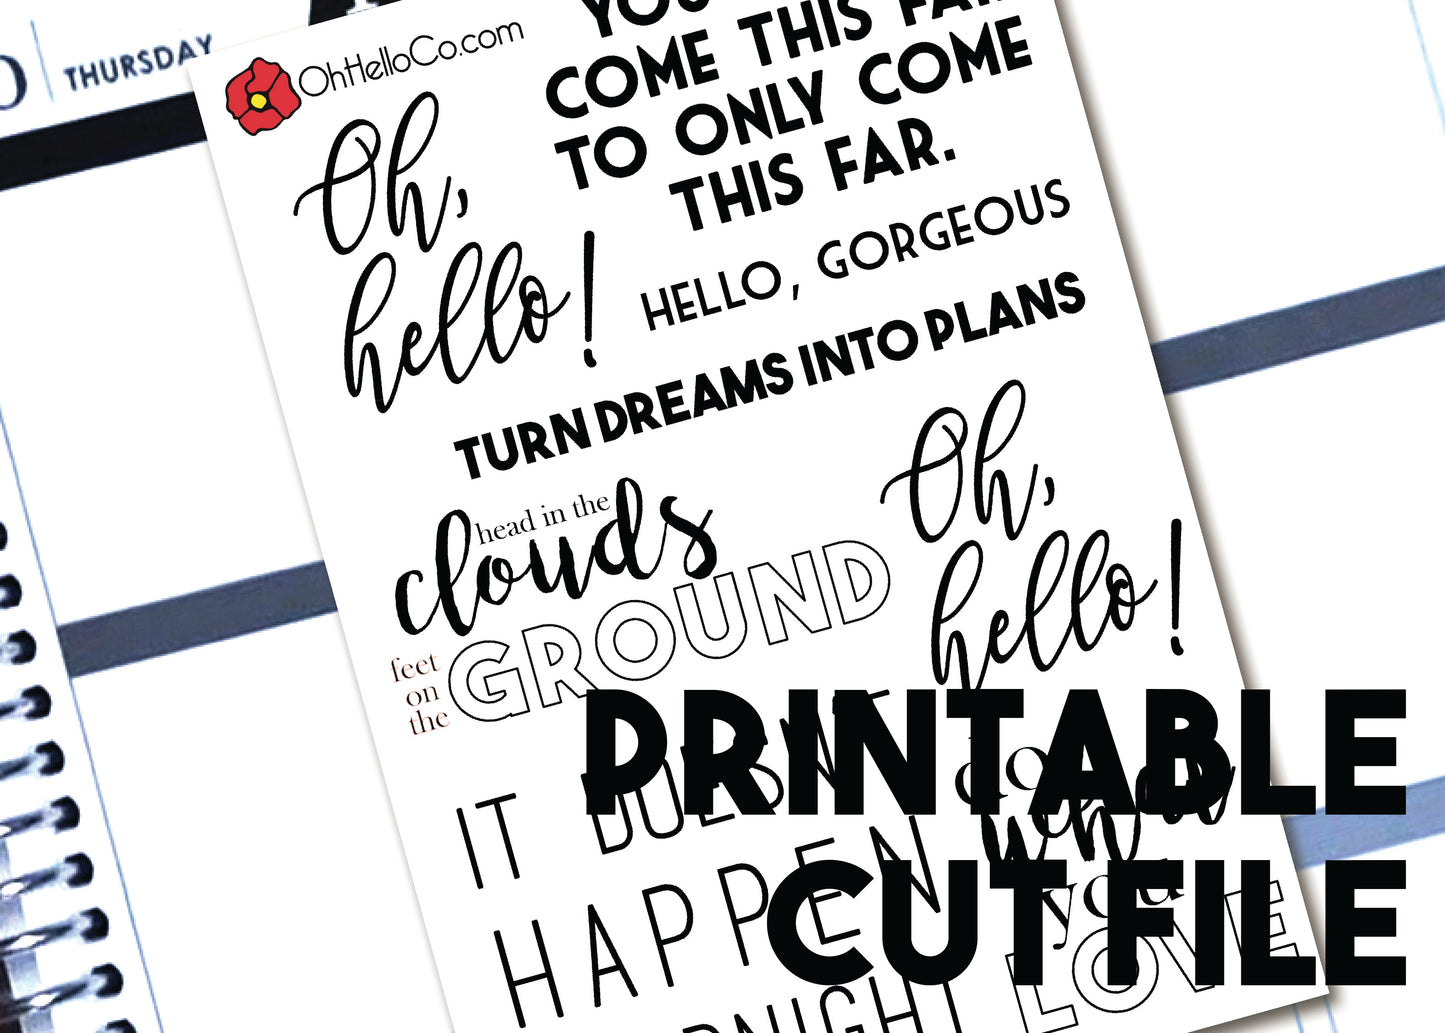 THURSDAY
OhHelloCo.com
COME THIS
TO ONLY COME
THIS FAR.
Oh,
hello!
HELLO, GORGEOUS
TURN DREAMS INTO PLANS
head in the
clouds
feet
on
the
GROUND
Oh,
hello!
IT DOESN'T
HAPPEN
do
what
you
LOVE
PRINTABLE
CUT FILE